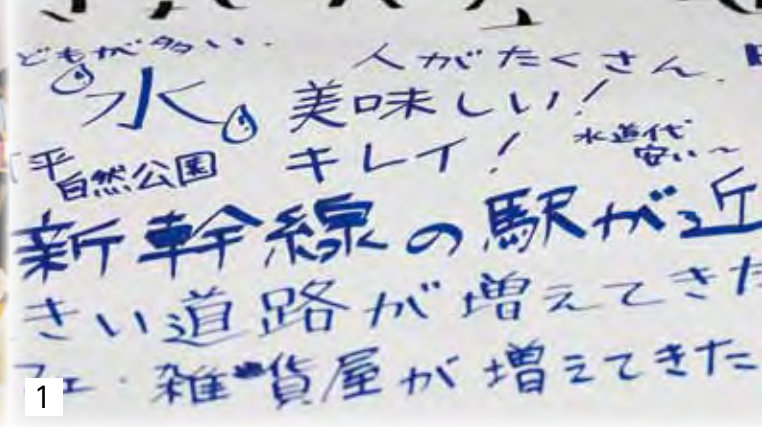 どもが多い.
人がたくさん.
水 美味しい!
キレイ! 水道代
安い~
平
自然公園
新幹線の駅が近
きい道路が増えてきた
フェ・雑貨屋が増えてきた
1